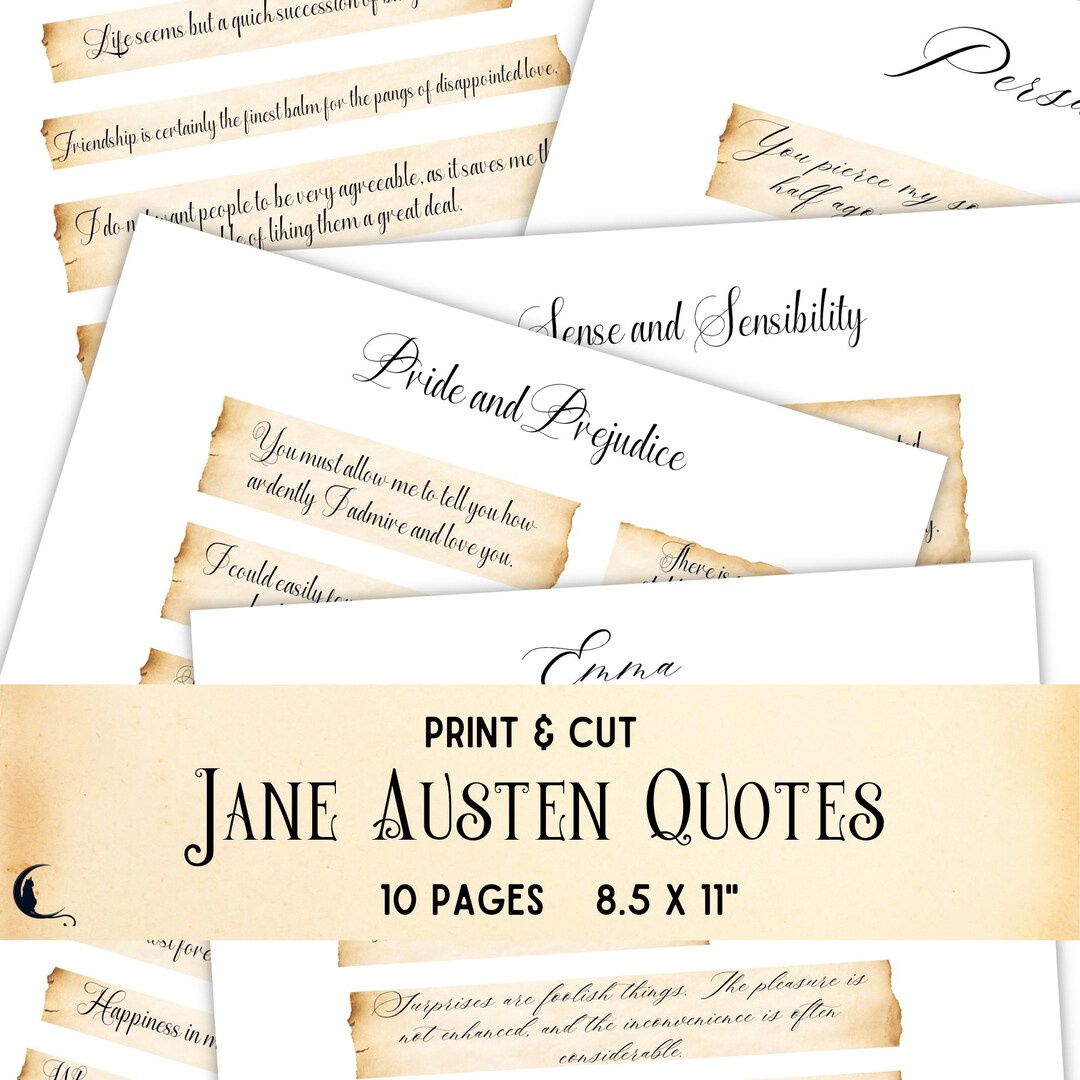 Life seems but a quick succession of
Friendship is certainly the finest balm for the pangs of disappointed love.
I do not want people to be very agreeable, as it saves me
of liking them a great deal.
Persu
You pierce my
half
Sense and Sensibility
Pride and Prejudice
You must allow me to tell you how
ardently I admire and love you.
I could easily
There is
Emma
PRINT & CUT
JANE AUSTEN QUOTES
10 PAGES 8.5 X 11"
Happiness in
Surprises are foolish things. The pleasure is
not enhanced, and the inconvenience is often
considerable.